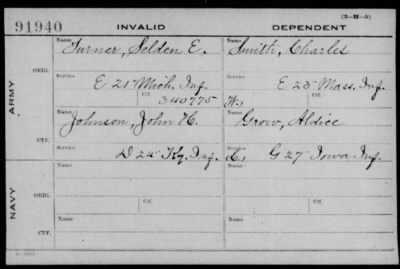 (3-II-5)
91940 INVALID DEPENDENT
Name Turner, Selden E. Name Smith, Charles
ARMY ORIG. Service E 21 Mich. Inf. Service E 23 Mass. Inf.
Ctf. 340775 Ctf. W.
Name Johnson, John H. Name Grow, Aldice
CTF. Service D 24 Ky. Inf. Service C. G 27 Iowa Inf.
Name Name
NAVY ORIG. Service Service
Ctf. Ctf.
Name Name
CTF. Service Service